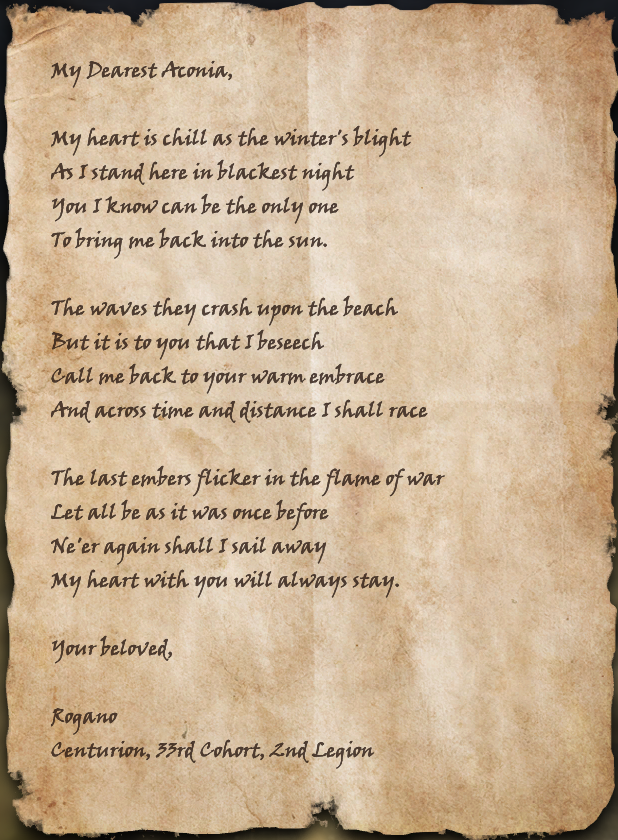 My Dearest Aconia,
My heart is chill as the winter's blight
As I stand here in blackest night
You I know can be the only one
To bring me back into the sun.
The waves they crash upon the beach
But it is to you that I beseech
Call me back to your warm embrace
And across time and distance I shall race
The last embers flicker in the flame of war
Let all be as it was once before
Ne'er again shall I sail away
My heart with you will always stay.
Your beloved,
Rogano
Centurion, 33rd Cohort, 2nd Legion